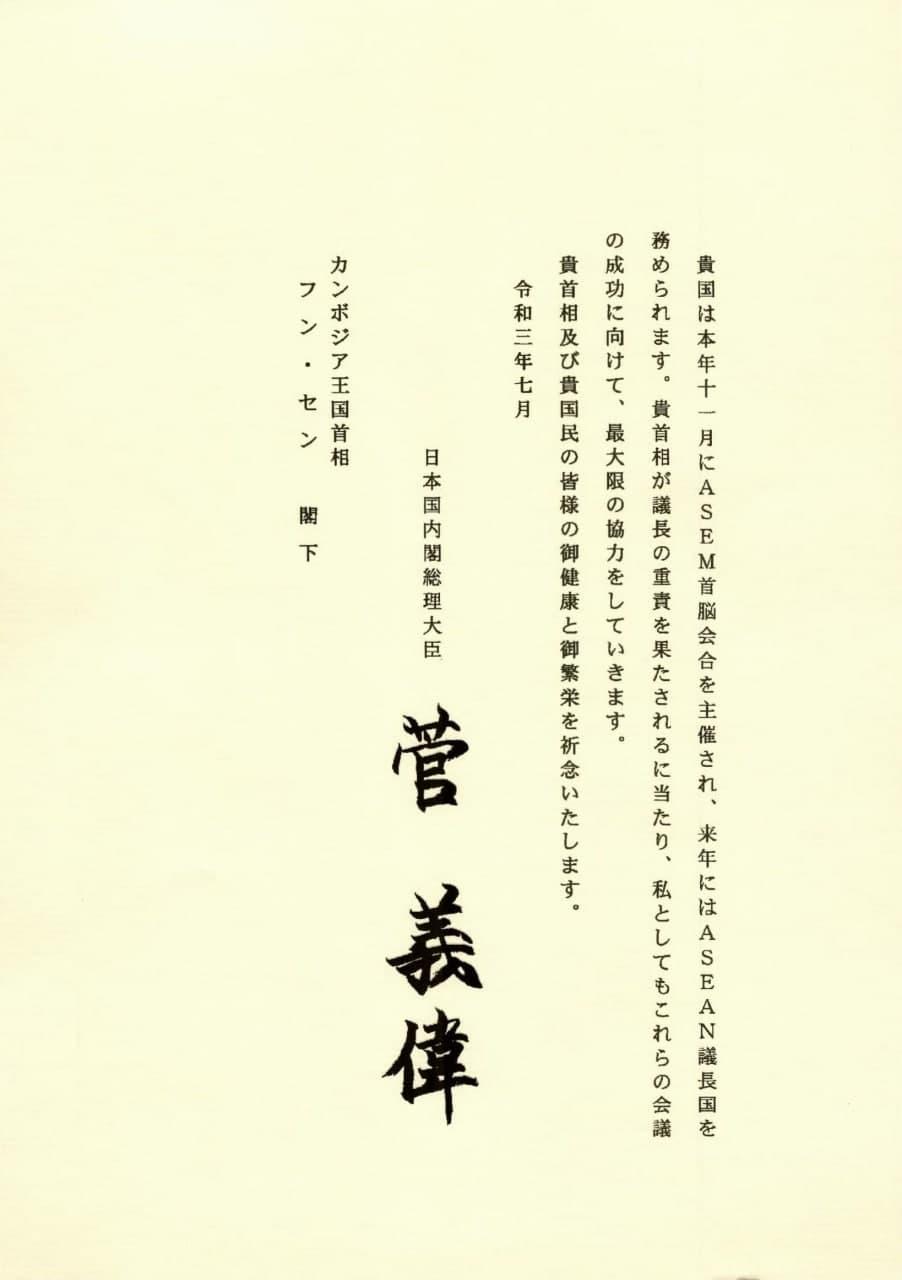 貴国は本年十一月にASEM首脳会合を主催され、来年にはASEAN議長国を
務められます。貴首相が議長の重責を果たされるに当たり、私としてもこれらの会議
の成功に向けて、最大限の協力をしていきます。
貴首相及び貴国民の皆様の御健康と御繁栄を祈念いたします。
令和三年七月
日本国内閣総理大臣 菅 義偉
カンボジア王国首相
フン・セン 閣下